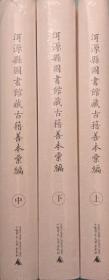 洱源縣圖書館藏古籍善本彙編
上
洱源縣圖書館藏古籍善本彙編
下
洱源縣圖書館藏古籍善本彙編
中